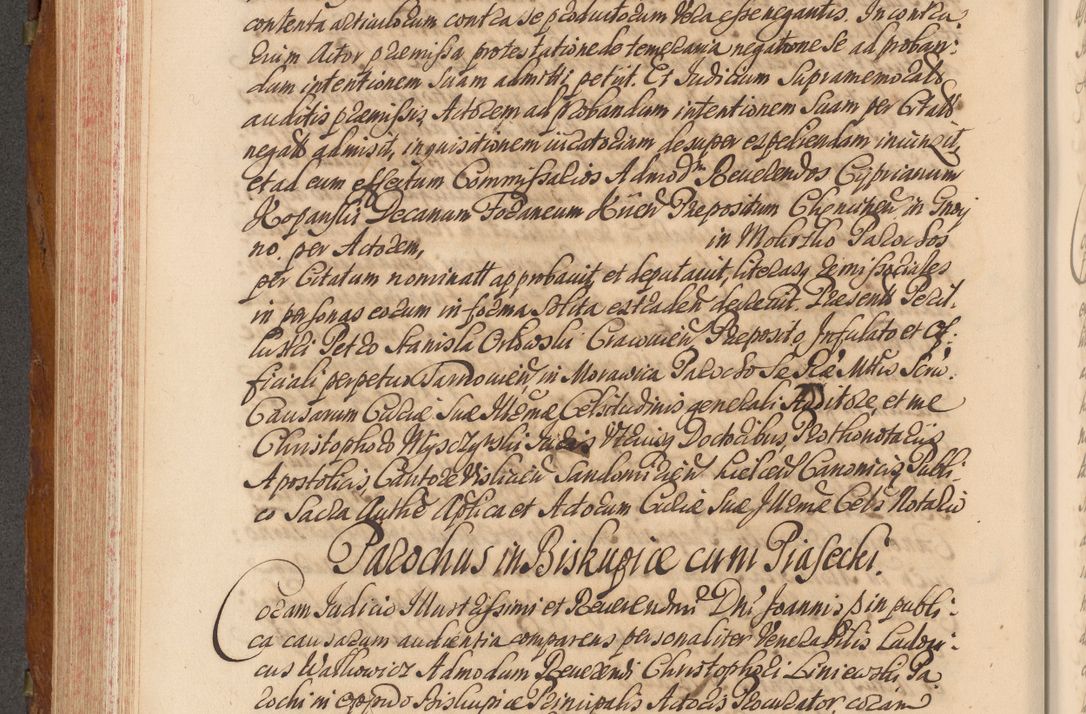 contenta articulorum contra se productorum vera esse negantis. In contra
rium Actor praemissa protestatione de temeraria negatione se ad proban:
dam intentionem suam admitti petiit. Et Judicium supramemorat
auditis praemissis Actorem ad probandum intentionem suam per Citat
negat admisit, inquisitionem juratoriam desuper expediendam iniunxit,
et ad eum effectum Commissarios Admod Reverendos Cyprianum
Kopanski Decanum Foraneum Prepositum in Gnoj
no per Actorem, in Mokrsko Parochos
per Citatum nominatt approbavit, et deputavit, literasq remissoriales
in personas eorum in forma solita extraden decrevit. Present Peril:
lustri Petro Stanisla Orlowski Cracovien Preposito Infulato et Of:
ficiali perpetuo Tarnovien in Morawica Parocho
Causarum Curiae Suae Illmae Celsitudinis generali Auditore, et me
Christophoro Doctoribus Prothonotariis
Apostolicis Cantore Vislicien Sandomirien Kielcen Canonicis Publi:
co Sacra Authe Aplica et Actorum Curiae Suae Illmae Cels Notario
Parochus in Biskupice cum Piasecki.
Coram Judicio Illustrissimi et Reverendmi Dni Joannis p in publi:
ca causarum audientia comparens personaliter Venerabilis Ludovi:
cus Walkowicz Admodum Reverendi Christophori Liniewski Pa
rochi in oppido Biskupice Principalis Actoris Procurator, coram